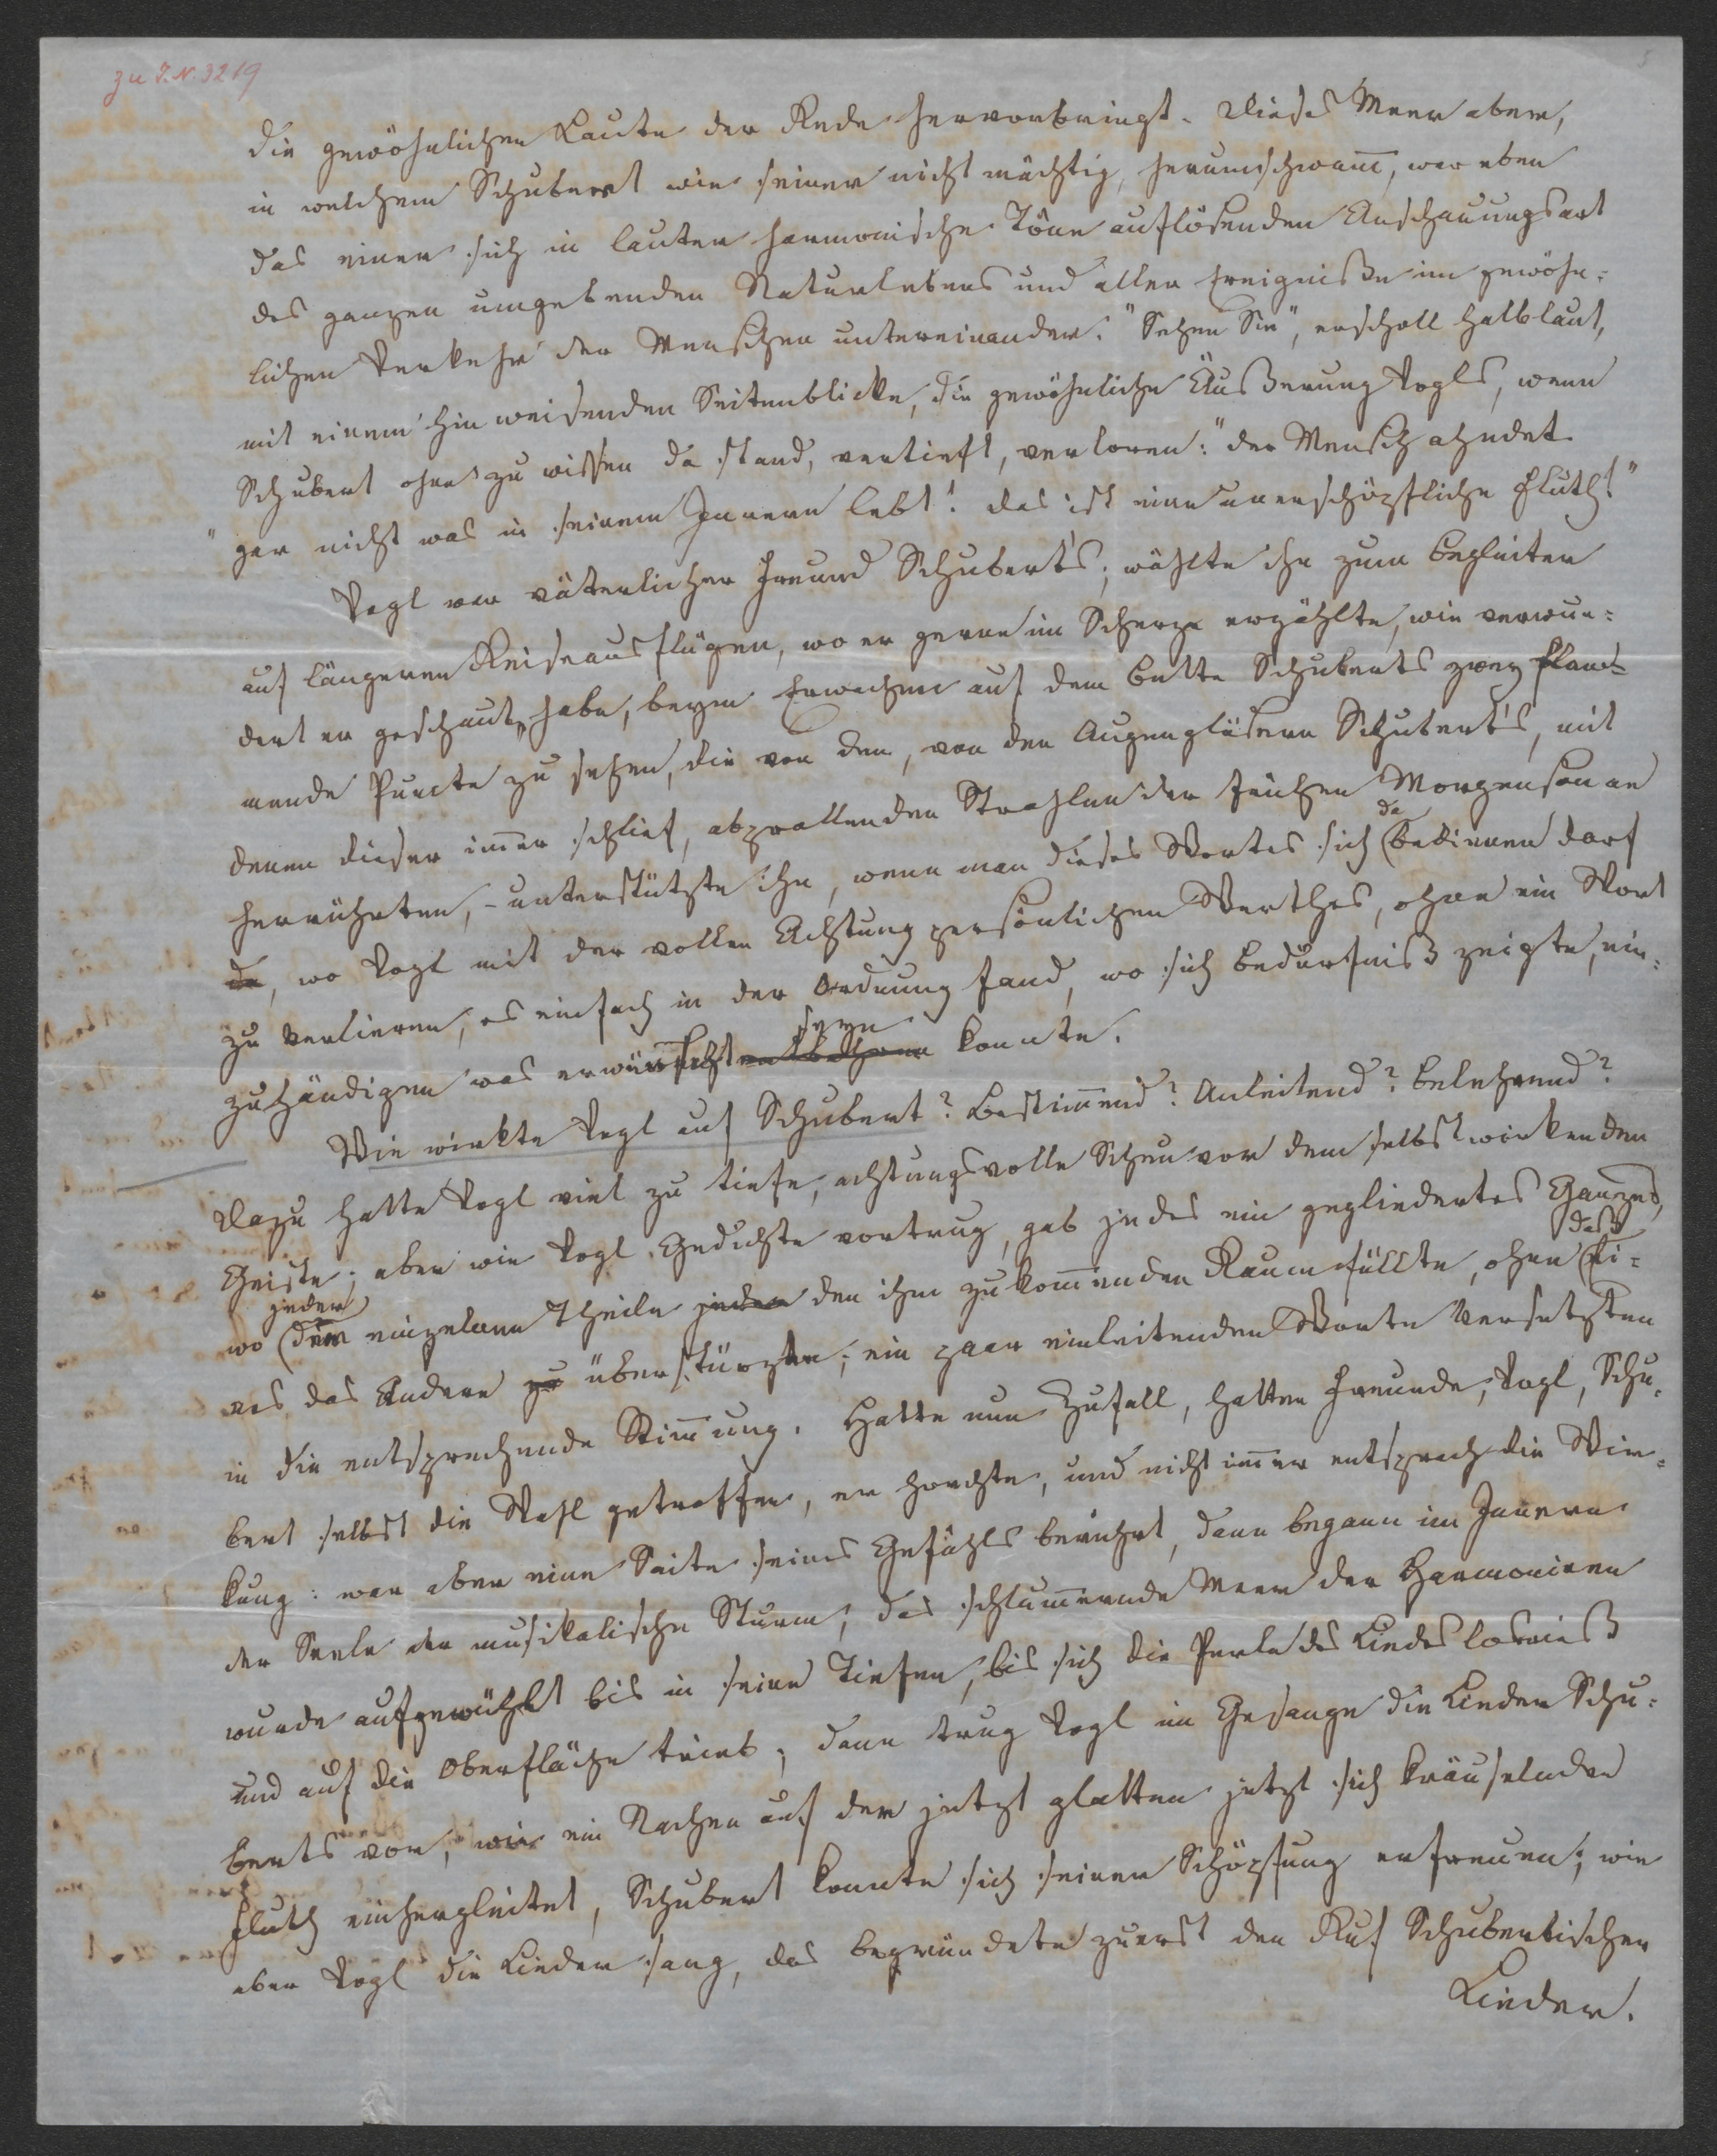 zu I.N. 3219
5
die gewöhnlichen Laute der Rede hervorbringt. Dieses Meer aber,
in welchem Schubert wie seiner nicht mächtig, herumschwam̄, war eben
das einer sich in lauter harmonische Töne auflösenden Anschauungsart
des ganzen umgebenden Naturlebens und aller Ereigniße im gewöhn=
lichen Verkehr der Menschen untereinander. "Sehen Sie", erscholl halblaut,
mit einem hinweisenden Seitenblicke, die gewöhnliche Äußerung Vogls, wenn
Schubert ohne zu wissen da stand, vertieft, verloren: "der Mensch ahndet
"gar nicht was in seinem Innern lebt! das ist eine unerschöpfliche Fluth!"
Vogl war väterlicher Freund Schubert's; wählte ihn zum Begleiter
auf längeren Reiseausflügen, wo er gerne im Scherze erzählte, wie verwun=
dert er geschaut habe, beym Erwachen auf dem Bette Schuberts zwey flam=
mende Puncte zu sehen, die von den, von den Augengläsern Schubert's, mit
denen dieser im̄er schlief, abprallenden Strahlen der frühen Morgensonne
herrührten, – unterstützte ihn, wenn man dieses Wortes sich da bedienen darf
da, wo Vogl mit der vollen Achtung persönlichen Werthes, ohne ein Wort
zu verlieren, es einfach in der Ordnung fand, wo sich Bedürfniß zeigte, ein=
zuhändigen was erwünscht entbehren seyn konnte.
Wie wirkte Vogl auf Schubert? Bestim̄end? Anleitend? Belehrend?
Dazu hatte Vogl viel zu tiefe, achtungsvolle Scheu vor dem selbst wirkenden
Geiste; aber wie Vogl Gedichte vortrug, gab jedes ein gegliedertes Ganzes,
wo jeder der einzelnen Theile jeder den ihm zukom̄enden Raum füllte, ohne daß Ei=
nes das Andere zu überstürzte; ein paar einleitenden Worte versetzten
in die entsprechende Stim̄ung. Hatte nun Zufall, hatten Freunde, Vogl, Schu=
bert selbst die Wahl getroffen, er horchte, und nicht im̄er entsprach die Wir=
kung: war aber eine Saite seines Gefühls berührt, dann begann im Innern
der Seele der musikalische Sturm; das schlum̄ernde Meer der Harmonieen
wurde aufgewühlt bis in seine Tiefen, bis sich die Perle des Liedes losriß
und auf die Oberfläche trieb; dann trug Vogl im Gesange die Lieder Schu=
berts vor, wie ein Nachen auf der jetzt glatten jetzt sich kräuselnden
Fluth einhergleitet, Schubert konnte sich seiner Schöpfung erfreuen; wie
aber Vogl die Lieder sang, das begründete zuerst den Ruf Schubertischer
Lieder.